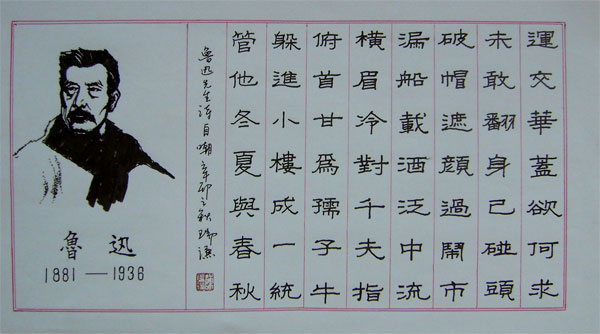 運交華蓋欲何求
未敢翻身已碰頭
破帽遮顏過鬧市
漏船載酒泛中流
橫眉冷對千夫指
俯首甘爲孺子牛
躲進小樓成一統
管他冬夏與春秋
魯迅先生詩自嘲 辛卯之秋
魯迅
1881—1936